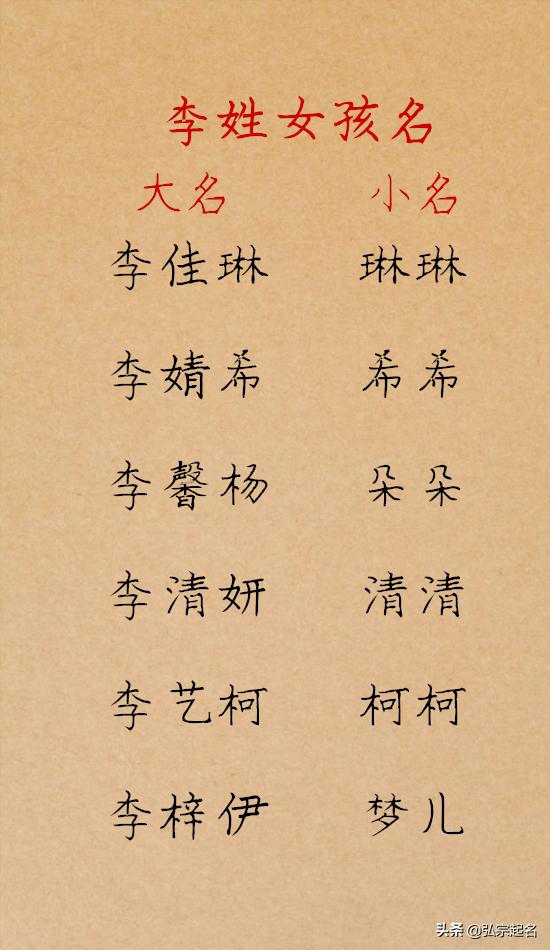 李姓女孩名
大名 小名
李佳琳 琳琳
李婧希 希希
李馨杨 朵朵
李清妍 清清
李艺柯 柯柯
李梓伊 梦儿
头条 @弘宗起名